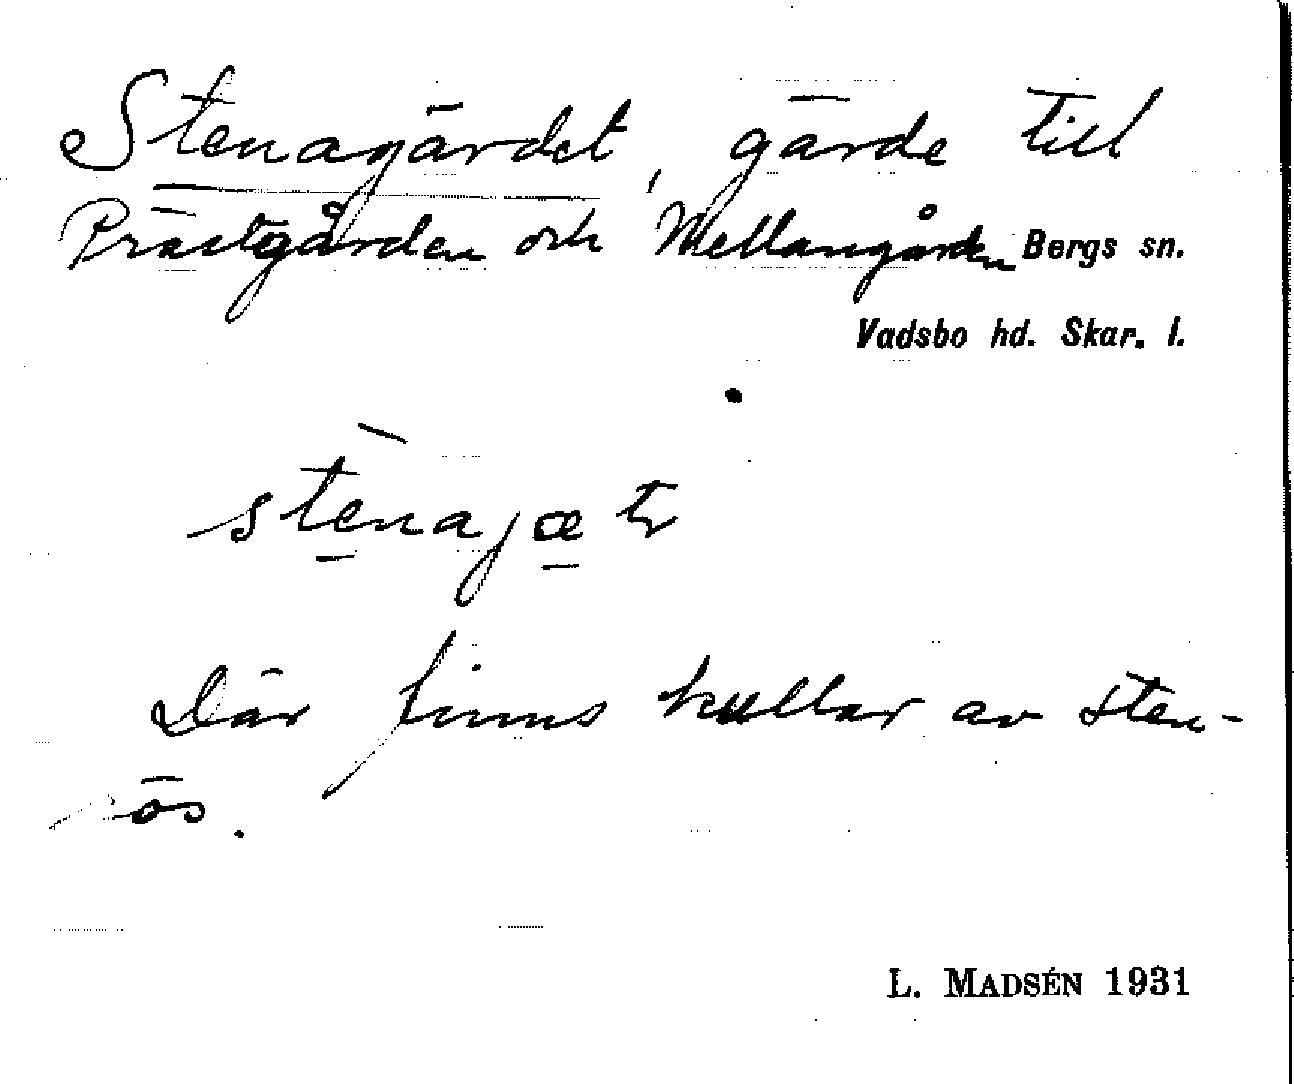 Stenagärdet, gärde till
Prästgården och Mellangården Bergs sn.
Vadsbo hd. Skar. l.
Där finns kullar av sten-
rös.
L. MADSÉN 1931